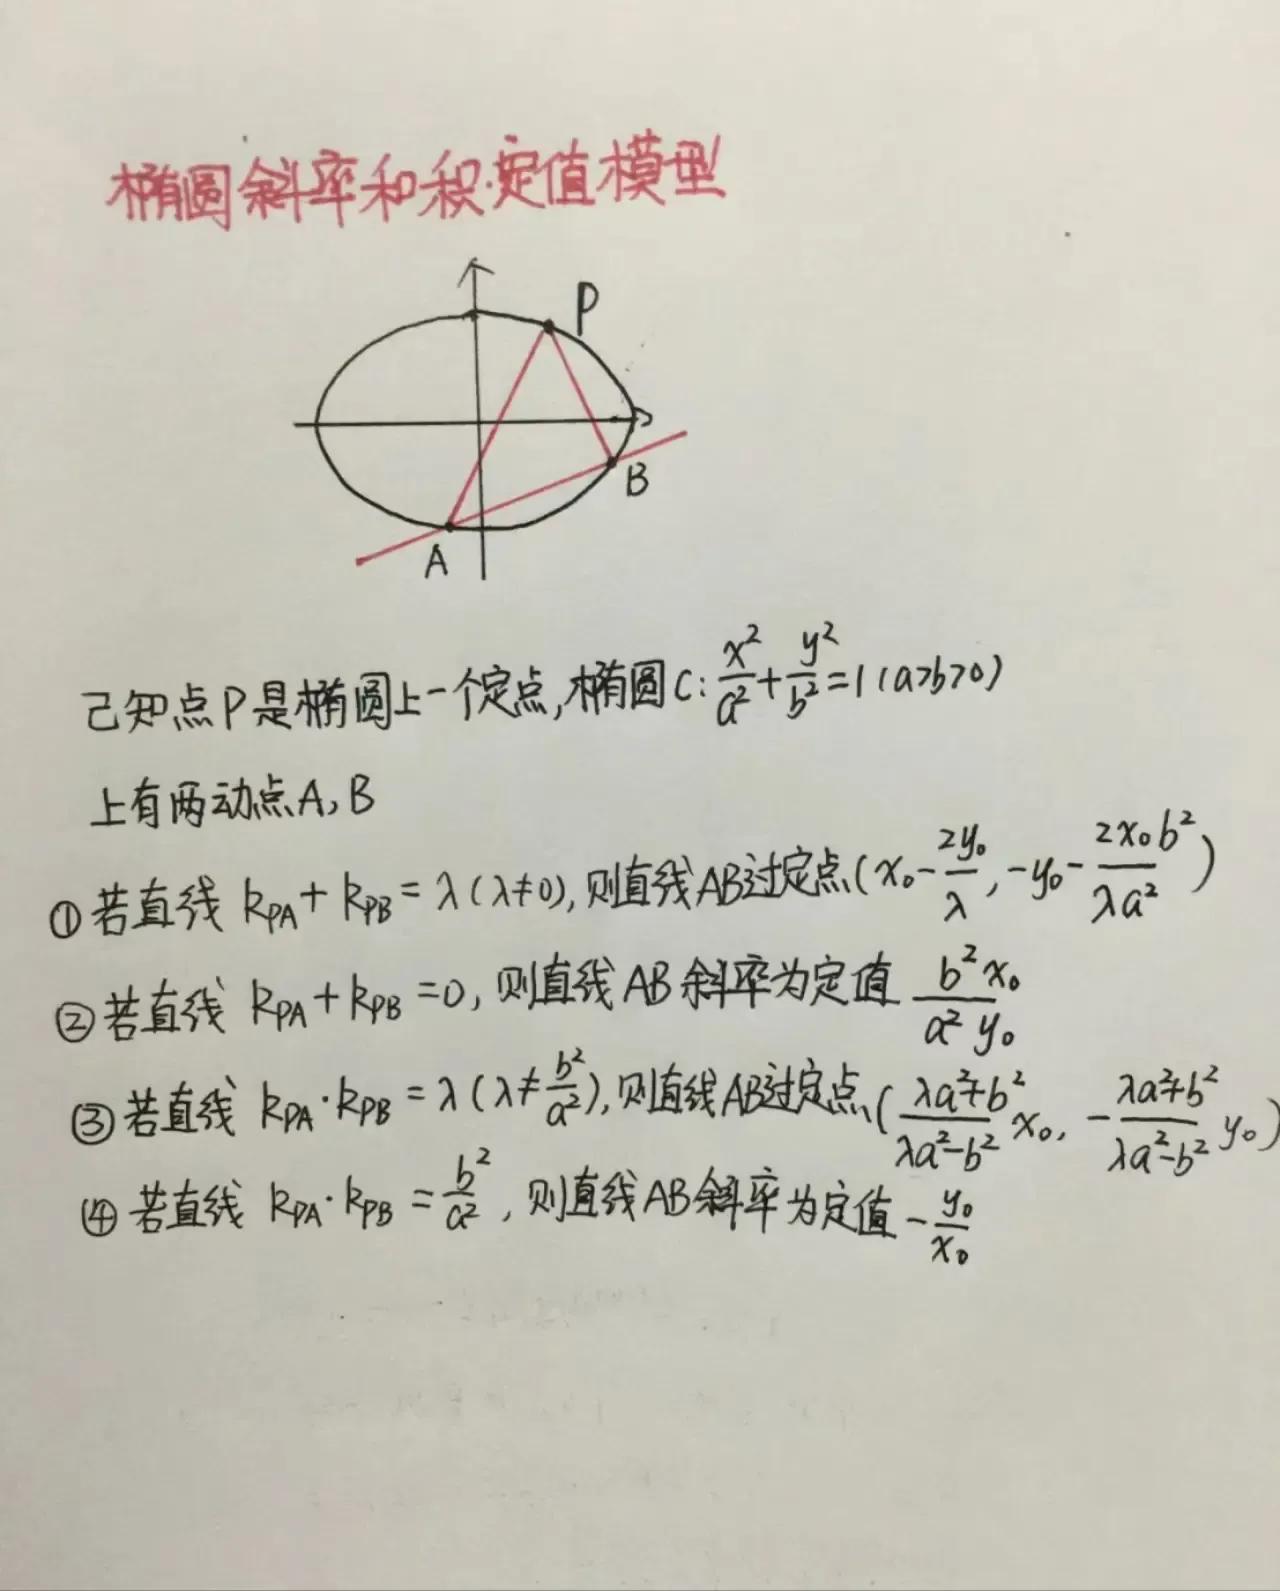 椭圆斜率和积·定值模型
P
B
A
已知点P是椭圆上一个定点,椭圆C:x²/a²+y²/b²=1(a>b>0)
上有两动点A,B
①若直线 kPA+kPB=λ(λ≠0),则直线AB过定点(x₀-2y₀/λ,-y₀-2x₀b²/λa²)
②若直线 kPA+kPB=0,则直线AB斜率为定值 b²x₀/a²y₀
③若直线 kPA·kPB=λ(λ≠b²/a²),则直线AB过定点(λa²+b²/λa²-b² x₀,-λa²+b²/λa²-b² y₀)
④若直线 kPA·kPB=b²/a²,则直线AB斜率为定值-y₀/x₀